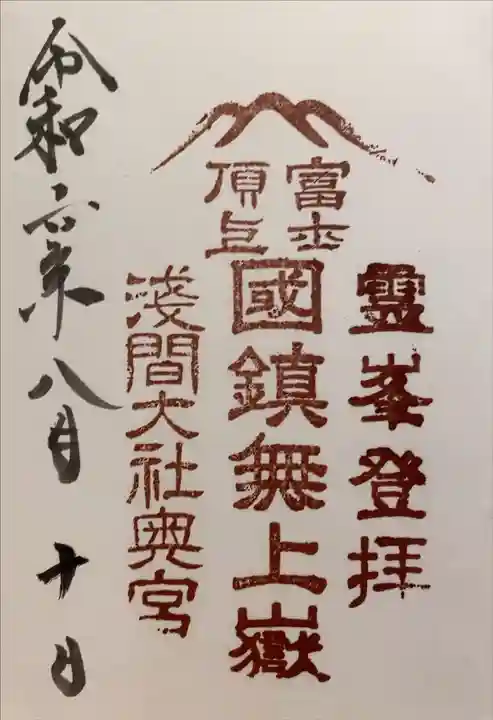 靈峯登拝
富士
頂上
國鎮無上嶽
淺間大社奥宮
令和六年八月十日